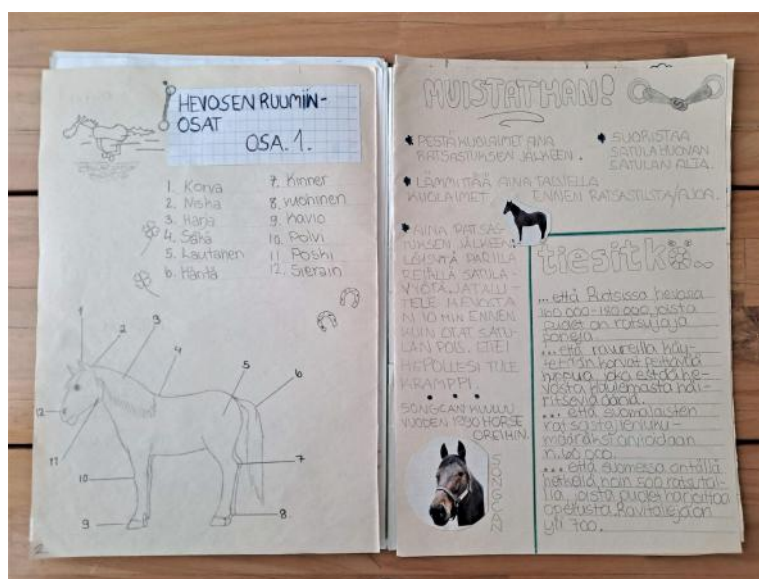 HEVOSEN RUUMIIN-
OSAT
OSA.1.
1. Korva
2. Niska
3. Harja
4. Säkä
5. Lautanen
6. Häntä
7. Kinner
8. vuohinen
9. Kavio
10. Polvi
11. Poski
12. Sierain
1
2
3
4
5
6
12
11
10
9
7
8.
2
MUISTATHAN!
PESTÄ KUOLAIMET AINA
RATSASTUKSEN JÄLKEEN.
SUORISTAA
SATULAHUOVAN
SATULAN ALTA.
LÄMMITTÄÄ AINA TALVELLA
KUOLAIMET ENNEN RATSASTUSTA/AJOA.
AINA RATSAS-
TUKSEN JÄLKEEN
LÖYSYTÄ PARILLA
REIÄLLÄ SATULA-
VYÖTÄ, JA TALU-
TELE HEVOSTA
N 10 MIN ENNEN
KUIN OTAT SATU-
LAN POIS. ETTEI
HEPOLLESI TULE
KRAMPPI.
SONGCAN KUULUU
VUODEN 1990 HORSE
OREIHIN.
SONGCAN
tiesitkö..
...että Ruotsissa hevosia
160 000-180 000, joista
puolet on ratsuja ja
poneja.
...että ravureilla käy-
tetään korvat peittävää
huppua joka estää he-
vosta kuulemasta häi-
ritseviä ääniä.
...että suomalaisten
ratsastajien luku-
määräksi arvioidaan
n. 60 000.
...että suomessa on tällä
hetkellä noin 500 ratsutal-
lia, joista puolet harjoittaa
opetusta. Ravitalleja on
yli 700.